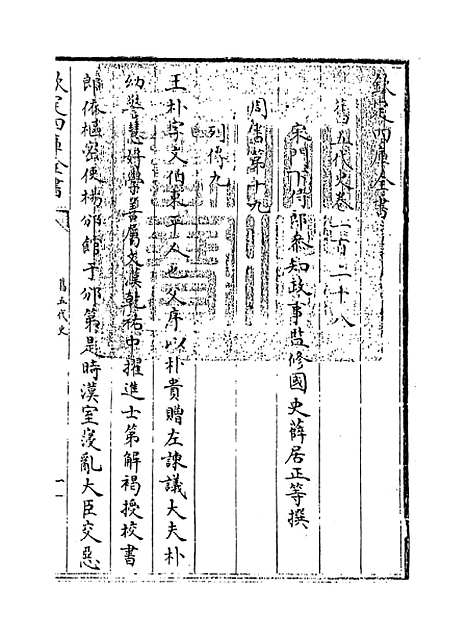 欽定四庫全書
舊五代史卷一百二十八
宋門下侍郎參知政事監修國史薛居正等撰
周書第十九
列傳九
王朴字文伯東平人也父序以朴貴贈左諫議大夫朴
幼警慧好學善屬文漢乾祐中擢進士第解褐授校書
郎依樞密使楊邠館于邠第是時漢室寖亂大臣交惡
欽定四庫全書
舊五代史
一